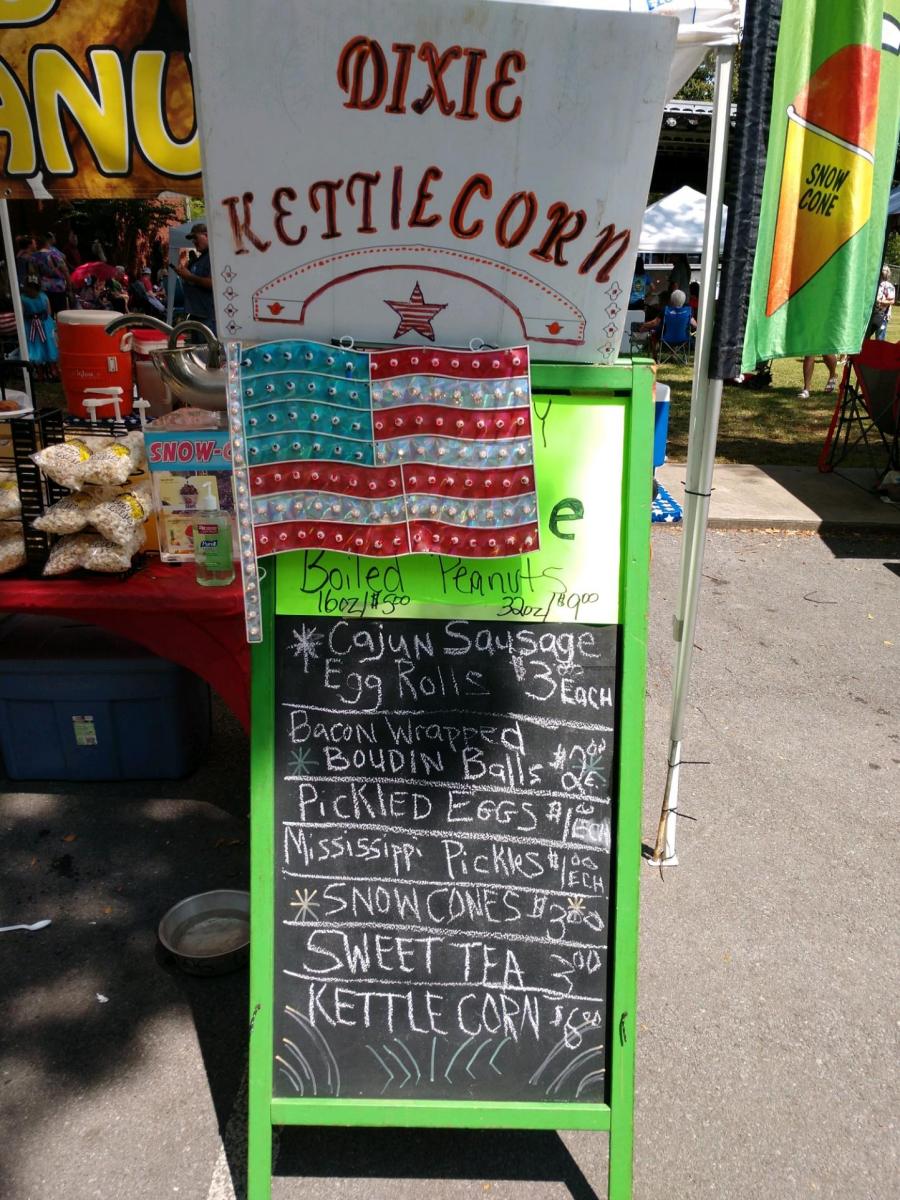 ANU
DIXIE
KETTLECORN
SNOW
CONE
SNOW-C
Y
e
Boiled Peanuts
16oz/$5.00 32oz/$9.00
Cajun Sausage
Egg Rolls $3.00 Each
Bacon Wrapped
BOUDIN Balls
PICKLED EGGS $1.00 ECH
Mississippi Pickles $1.00 ECH
SNOW CONES $3.00
SWEET TEA 3.00
KETTLE CORN $6.00